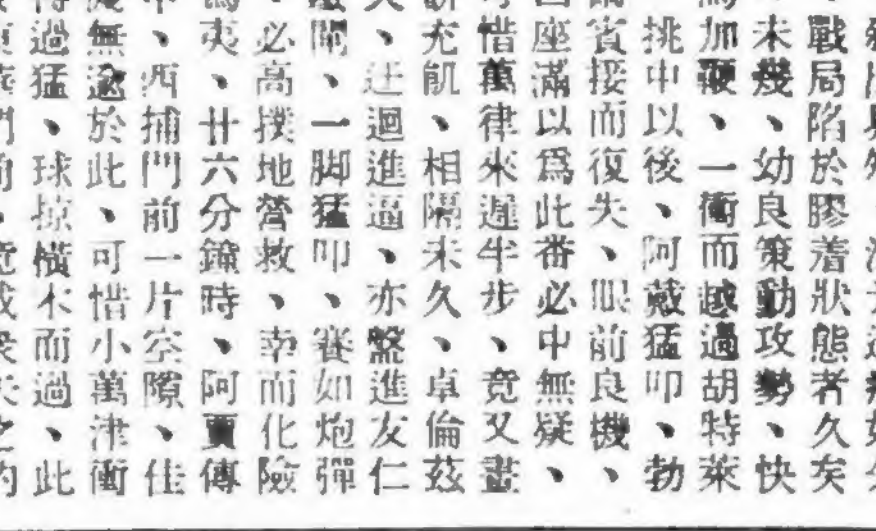 、戰局陷於膠着狀態者久矣
未幾、幼良策動攻勢、快
加鞭、一衝而越過胡特萊
挑中以後、阿戴猛叩、勃
賓接而復失、眼前良機、
座滿以爲此番必中無疑、
惜萬律來遲半步、竟又畫
充飢、相隔未久、卓倫茲
、迂迴進逼、亦盤進友仁
關、一脚猛叩、賽如炮彈
必高撲地營救、幸而化險
夷、廿六分鐘時、阿賈傳
、西捕門前一片空隙、佳
無逾於此、可惜小萬津衝
過猛、球掠橫木而過、此